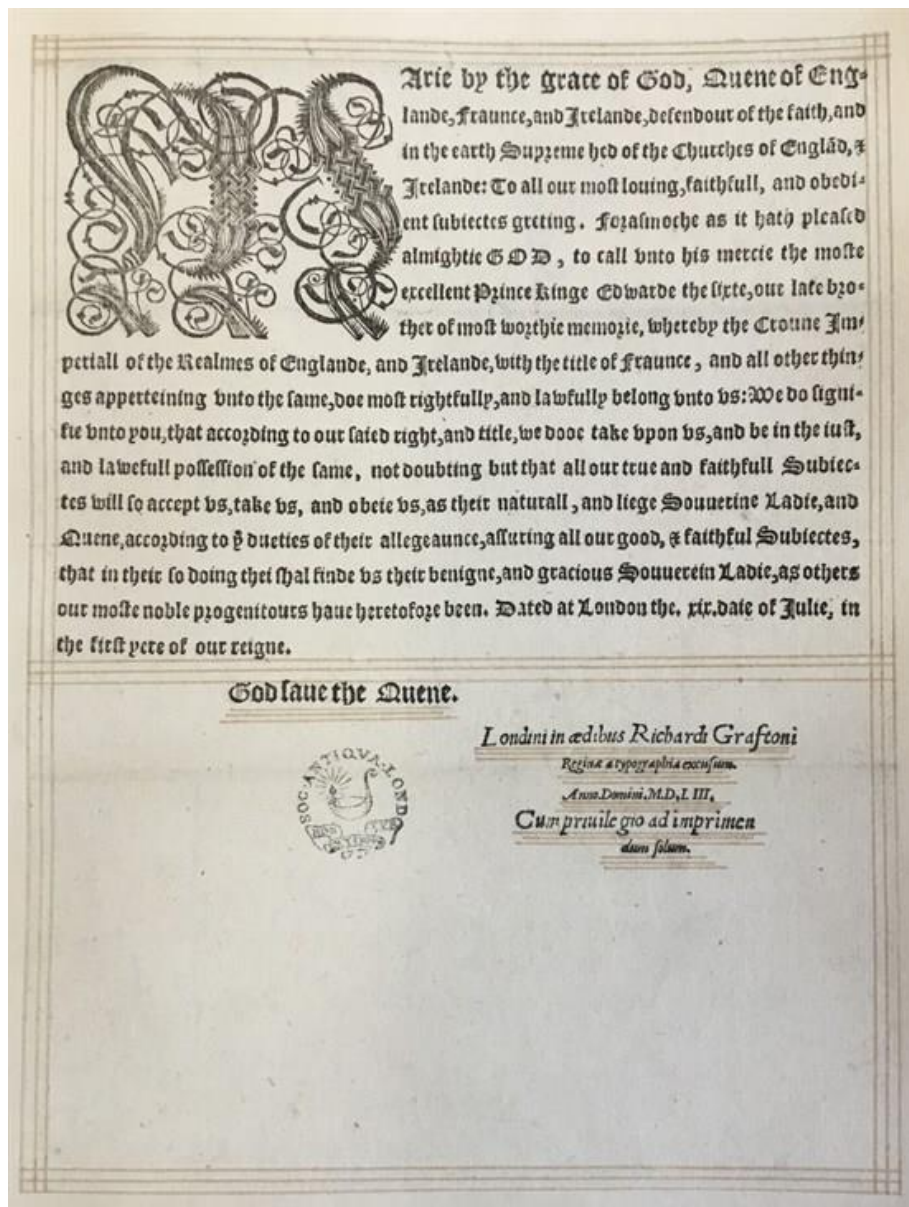 MArie by the grace of God, Quene of Eng-
lande, Fraunce, and Irelande, defendour of the faith, and
in the earth Supreme hed of the Churches of Englãd, &
Irelande: To all our most louing, faithfull, and obedi-
ent subiectes greting. Forasmoche as it hath pleased
almightie GOD, to call vnto his mercie the moste
excellent Prince Kinge Edwarde the sixte, our late bro-
ther of most worthie memorie, whereby the Croune Im-
periall of the Realmes of Englande, and Irelande, with the title of Fraunce, and all other thin-
ges apperteining vnto the same, doe most rightfully, and lawfully belong vnto vs: We do signi-
fie vnto you, that according to our saied right, and title, we dooe take vpon vs, and be in the iust,
and lawefull possession of the same, not doubting but that all our true and faithfull Subiec-
tes will so accept vs, take vs, and obeie vs, as their naturall, and liege Souuerine Ladie, and
Quene, according to þͤ dueties of their allegeaunce, assuring all our good, & faithful Subiectes,
that in their so doing thei shal finde vs their benigne, and gracious Souuerein Ladie, as others
our moste noble progenitours haue heretofore been. Dated at London the. xix. daie of Julie, in
the first yere of our reigne.
God saue the Quene.
Londini in ædibus Richardi Graftoni
Reginæ a typographia excusum.
Anno.Domini.M.D.LIII.
Cum priuilegio ad imprimen
dum solum.
SOC. ANTIQVA. LOND